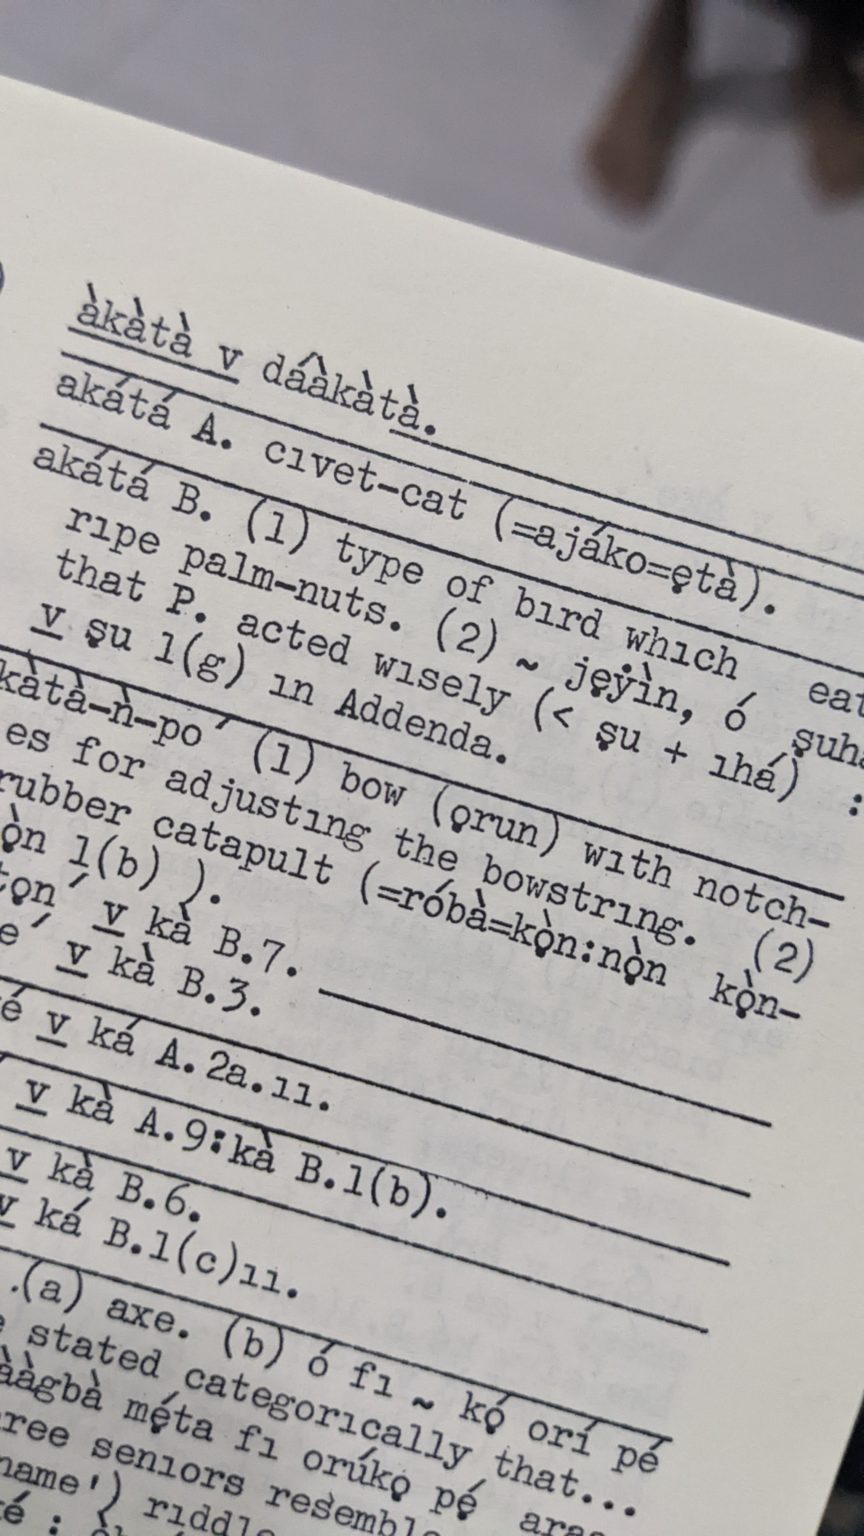 àkàtà v dáàkàtà.
akátá A. cıvet-cat (=ajáko=ẹtà).
akátá B. (1) type of bırd whıch eat
rıpe palm-nuts. (2) ~ jẹỳìn, ó ṣuhá
that P. acted wısely (< ṣu + ıhá) :
v ṣu 1(g) ın Addenda.
kàtà-ǹ-po´ (1) bow (ọrun) wıth notch-
es for adjustıng the bowstrıng. (2)
rubber catapult (=róbà=kọ̀n:nọ̀n kọ̀n-
ọ̀n 1(b) ).
tọn´ v kà B.7.
e´ v kà B.3.
é v ká A.2a.ıı.
v kà A.9:kà B.1(b).
v kà B.6.
v ká B.1(c)ıı.
.(a) axe. (b) ó fı ~ kọ́ orí pé
stated categorıcally that...
ààgbà mẹ́ta fı orúkọ pẹ́ ara
ree senıors resembl
name') rıddl
é :